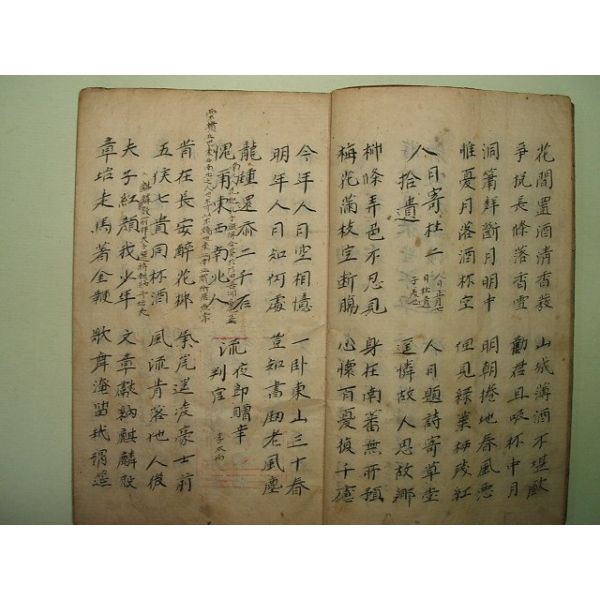 花間置酒清香發 山城薄酒不堪歠
爭挽長條落香雪 勸君且吸杯中月
洞簫聲斷月明中 明朝捲地春風惡
惟憂月落酒杯空 但見綠葉棲殘紅
人日寄杜二 人日題詩寄草堂
拾遺 遙憐故人思故鄉
柳條弄色不忍見 身在南蕃無所預
梅花滿枝空斷腸 心懷百憂復千慮
今年人日空相憶 一卧東山三十春
明年人日知何處 豈知書劒老風塵
龍鍾還忝二千石 流夜郎贈辛
愧爾東西南北人 判官 李太白
昔在長安醉花柳 氣岸遙凌豪士前
五侯七貴同杯酒 風流肯落他人後
夫子紅顏我少年 文章獻納麒麟殿
章坮走馬著金鞭 歌舞淹留玳瑁筵